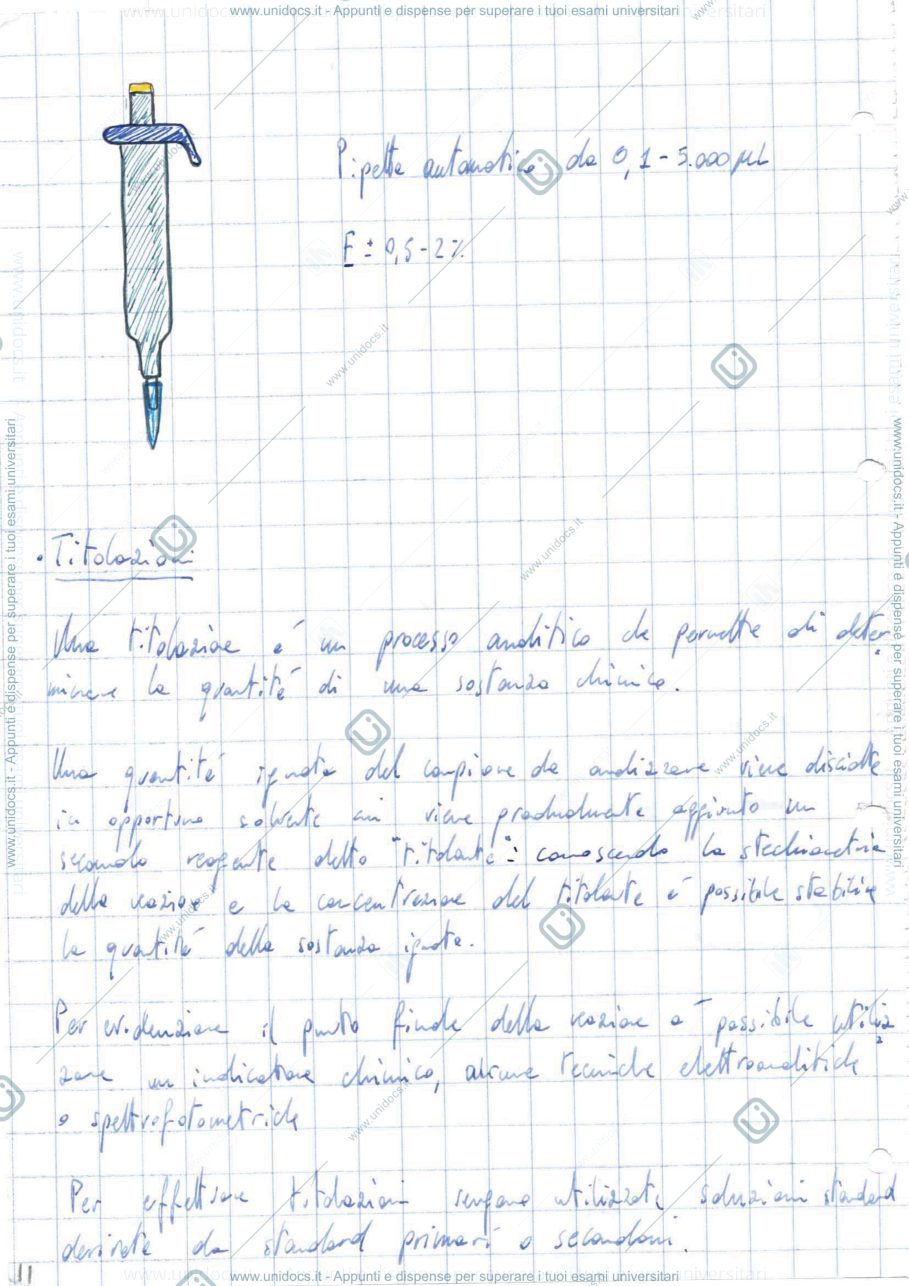 www.unidocs.it - Appunti e dispense per superare i tuoi esami universitari
Pipetta automatica da 0,1 - 5.000 µL
E ± 0,5 - 2 %
• Titolazioni
Una titolazione é un processo analitico che permette di deter
minare la quantitá di una sostanza chimica.
Una quantitá ignota del campione da analizzare viene disciolta
in opportuno solvente cui viene gradualmente aggiunto un
secondo reagente detto "titolante": conoscendo la stechiometria
della reazione e la concentrazione del titolante é possibile stabilire
la quantitá della sostanza ignota.
Per evidenziare il punto finale della reazione é possibile utiliz
zare un indicatore chimico, alcune tecniche elettroanalitiche
o spettrofotometriche
Per effettuare titolazioni vengono utilizzate soluzioni standard
derivate da standard primari o secondari.
11
www.unidocs.it - Appunti e dispense per superare i tuoi esami universitari
www.unidocs.it - Appunti e dispense per superare i tuoi esami universitari
www.unidocs.it - Appunti e dispense per superare i tuoi esami universitari
www.unidocs.it
www.unidocs.it
www.unidocs.it
www.unidocs.it
www.unidocs.it